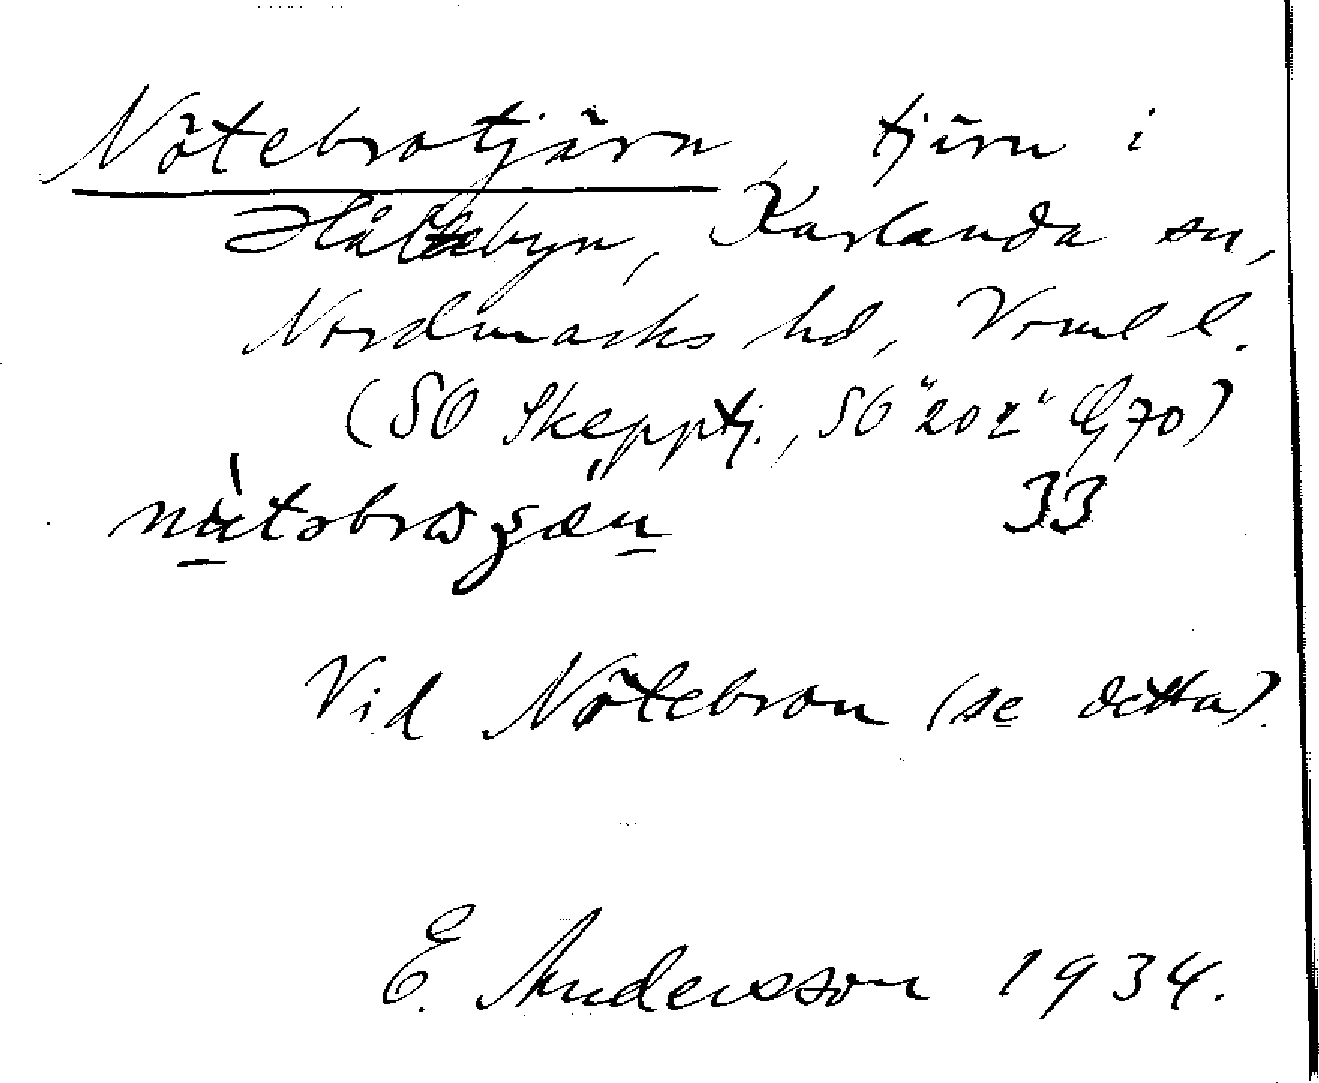 Nötebrotjärn, tjärn i
Håltebyn, Karlanda sn,
Nordmarks hd, Vrml l.
(SO Skepptj., SO "202" Eg 70)
33
Vid Nötebron (se detta).
E. Andersson 1934.